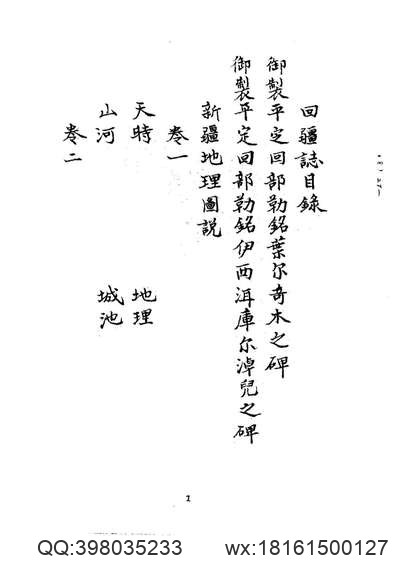 回疆誌目錄
御製平定回部勒銘葉尔奇木之碑
御製平定回部勒銘伊西洱庫尔淖兒之碑
新疆地理圖説
卷一
天時 地理
山河 城池
卷二
1
QQ:398035233 wx:18161500127